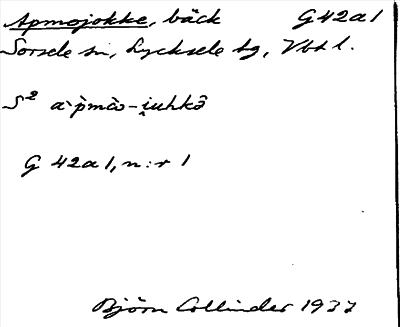 Apmojokke, bäck G42a1
Sorsele sn, Lycksele tg, Vbt l.
S² a`p̀mɷ̀-i̯uhkɷ̂
G 42a1, n:r 1
Björn Collinder 1937